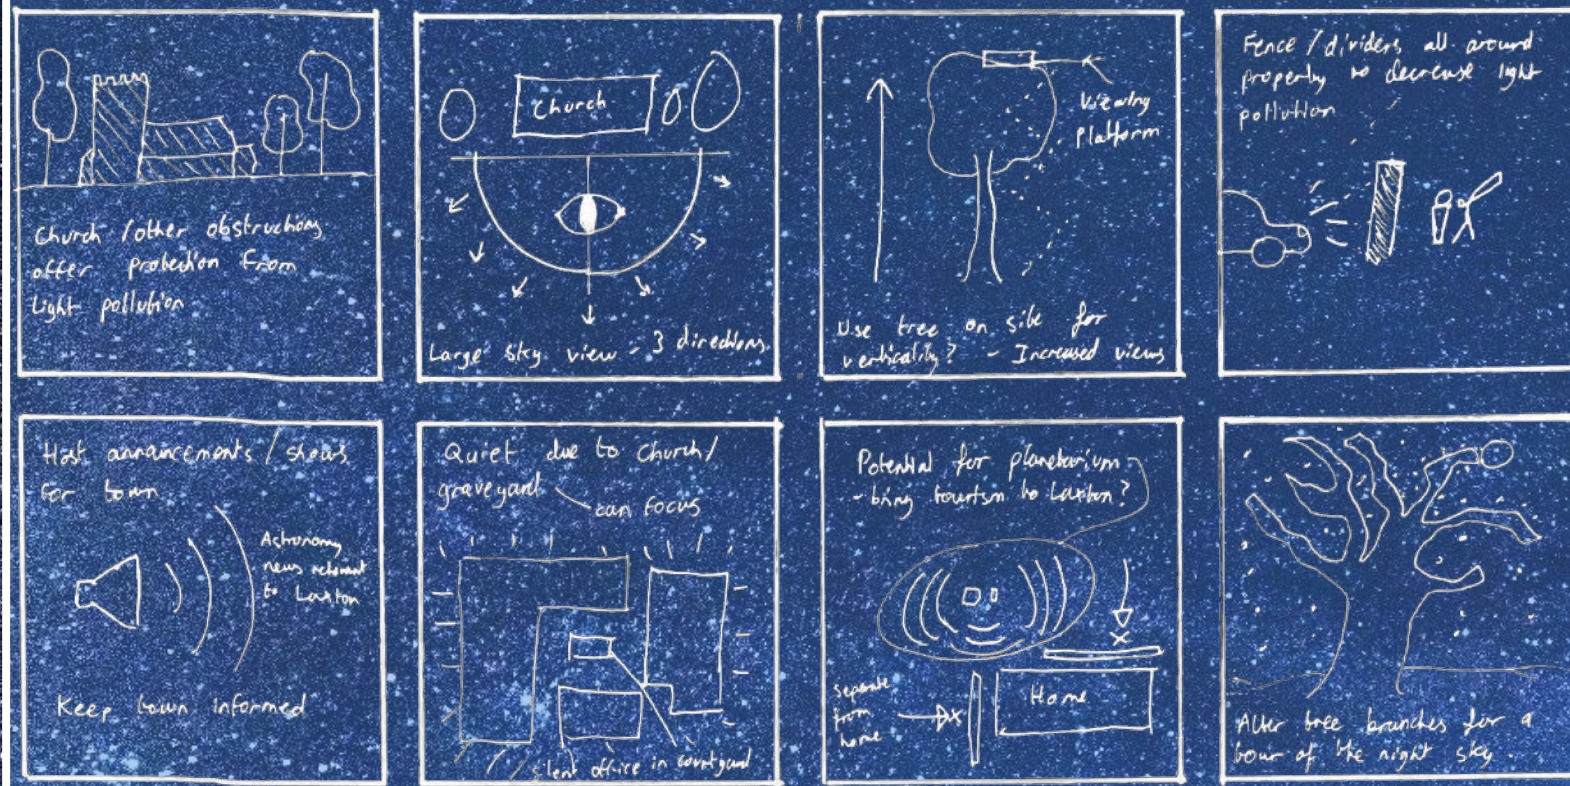 Church / other obstructions
offer protection from
light pollution
Church
Large sky view - 3 directions.
Viewing
Platform
Use tree on site for
verticality? - Increased views
Fence / dividers all around
property to decrease light
pollution
Host annancements / shows
for town
Astronomy
news relevant
to Laxton
Keep town informed
Quiet due to church/
graveyard
can focus
silent office in courtyard
Potential for planetarium
- bring tourism to Laxton?
Separate
from
home
Home
Alter tree branches for a
tour of the night sky.